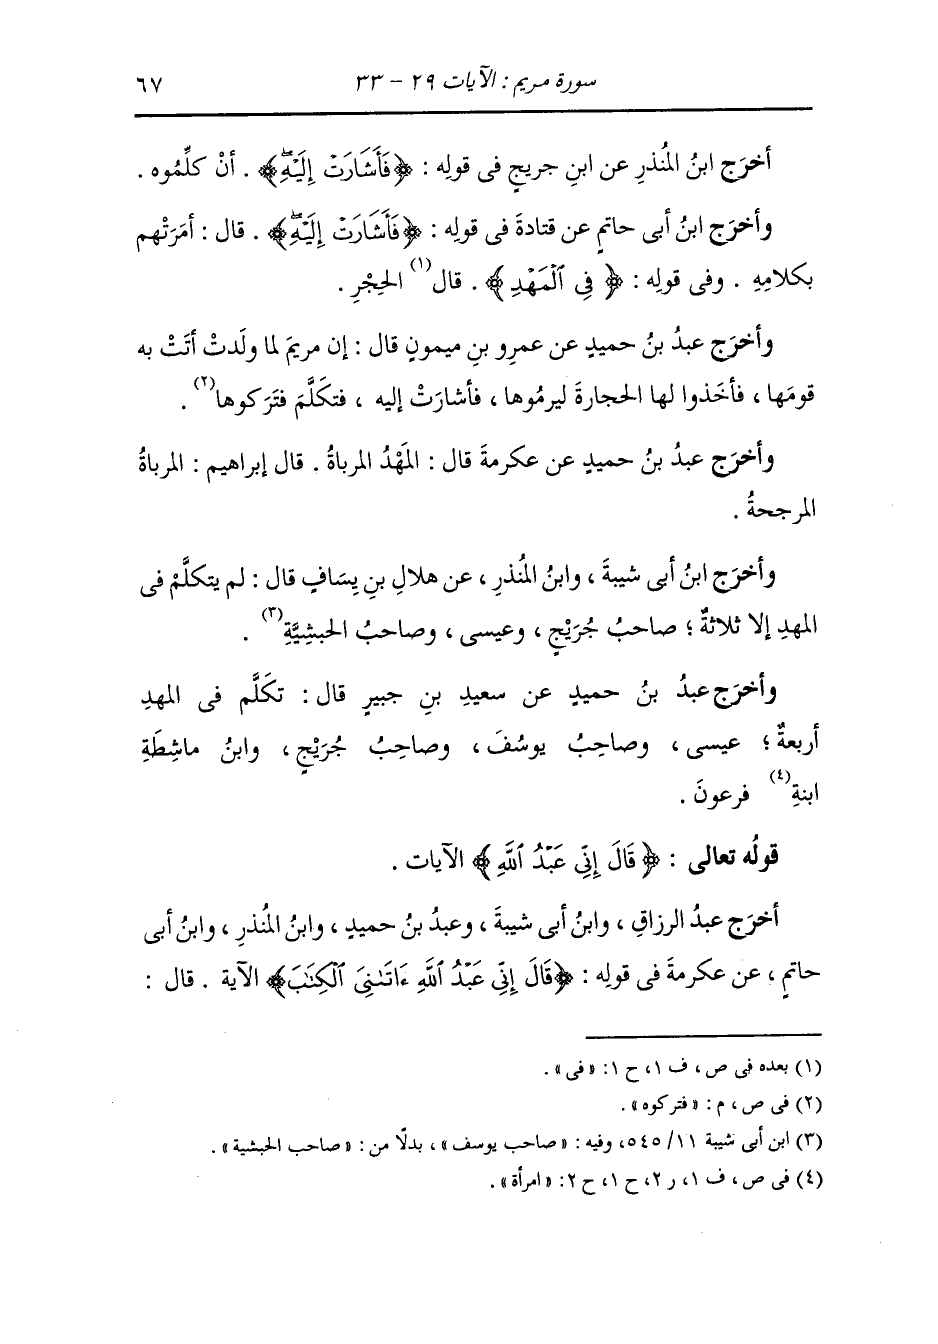 سورة مريم : الآيات ٢٩ - ٣٣ ٦٧
أخرَج ابنُ المُنذرِ عن ابنِ جريجٍ فى قولِه : ﴿فَأَشَارَتْ إِلَيْهِۖ﴾ . أنْ كلِّمُوه .
وأخرَج ابنُ أبى حاتمٍ عن قتادةَ فى قولِه : ﴿فَأَشَارَتْ إِلَيْهِۖ﴾ . قال : أمَرَتْهم
بكلامِهِ . وفى قولِه : ﴿فِي ٱلْمَهْدِ﴾ . قال(١) الحِجْرِ .
وأخرَج عبدُ بنُ حميدٍ عن عمرِو بنِ ميمونٍ قال : إن مريمَ لما ولَدتْ أتَتْ به
قومَها ، فأخَذوا لها الحجارةَ ليرمُوها ، فأشارَتْ إليه ، فتكَلَّمَ فتَرَكوها(٢) .
وأخرَج عبدُ بنُ حميدٍ عن عكرمةَ قال : المَهْدُ المرباةُ . قال إبراهيم : المرباةُ
المرجحةُ .
وأخرَج ابنُ أبى شيبةَ ، وابنُ المُنذرِ ، عن هلالِ بنِ يِسَافٍ قال : لم يتكلَّمْ فى
المهدِ إلا ثلاثةٌ ؛ صاحبُ جُرَيْجٍ ، وعيسى ، وصاحبُ الحبشِيَّةِ(٣) .
وأخرَج عبدُ بنُ حميدٍ عن سعيدِ بنِ جبيرٍ قال : تكَلَّم فى المهدِ
أربعةٌ ؛ عيسى ، وصاحِبُ يوسُفَ ، وصاحِبُ جُرَيْجٍ ، وابنُ ماشِطَةِ
ابنةِ(٤) فرعونَ .
قولُه تعالى : ﴿قَالَ إِنِّي عَبْدُ ٱللَّهِ﴾ الآيات .
أخرَج عبدُ الرزاقِ ، وابنُ أبى شيبةَ ، وعبدُ بنُ حميدٍ ، وابنُ المُنذرِ ، وابنُ أبى
حاتمٍ ، عن عكرمةَ فى قولِه : ﴿قَالَ إِنِّي عَبْدُ ٱللَّهِ ءَاتَىٰنِيَ ٱلْكِتَٰبَ﴾ الآية . قال :
(١) بعده فى ص ، ف ١، ح ١: «فى» .
(٢) فى ص ، م : «فتركوه» .
(٣) ابن أبى شيبة ١١/ ٥٤٥، وفيه : «صاحب يوسف» ، بدلًا من : «صاحب الحبشية» .
(٤) فى ص ، ف ١، ر ٢، ح ١، ح ٢: «امرأة» .